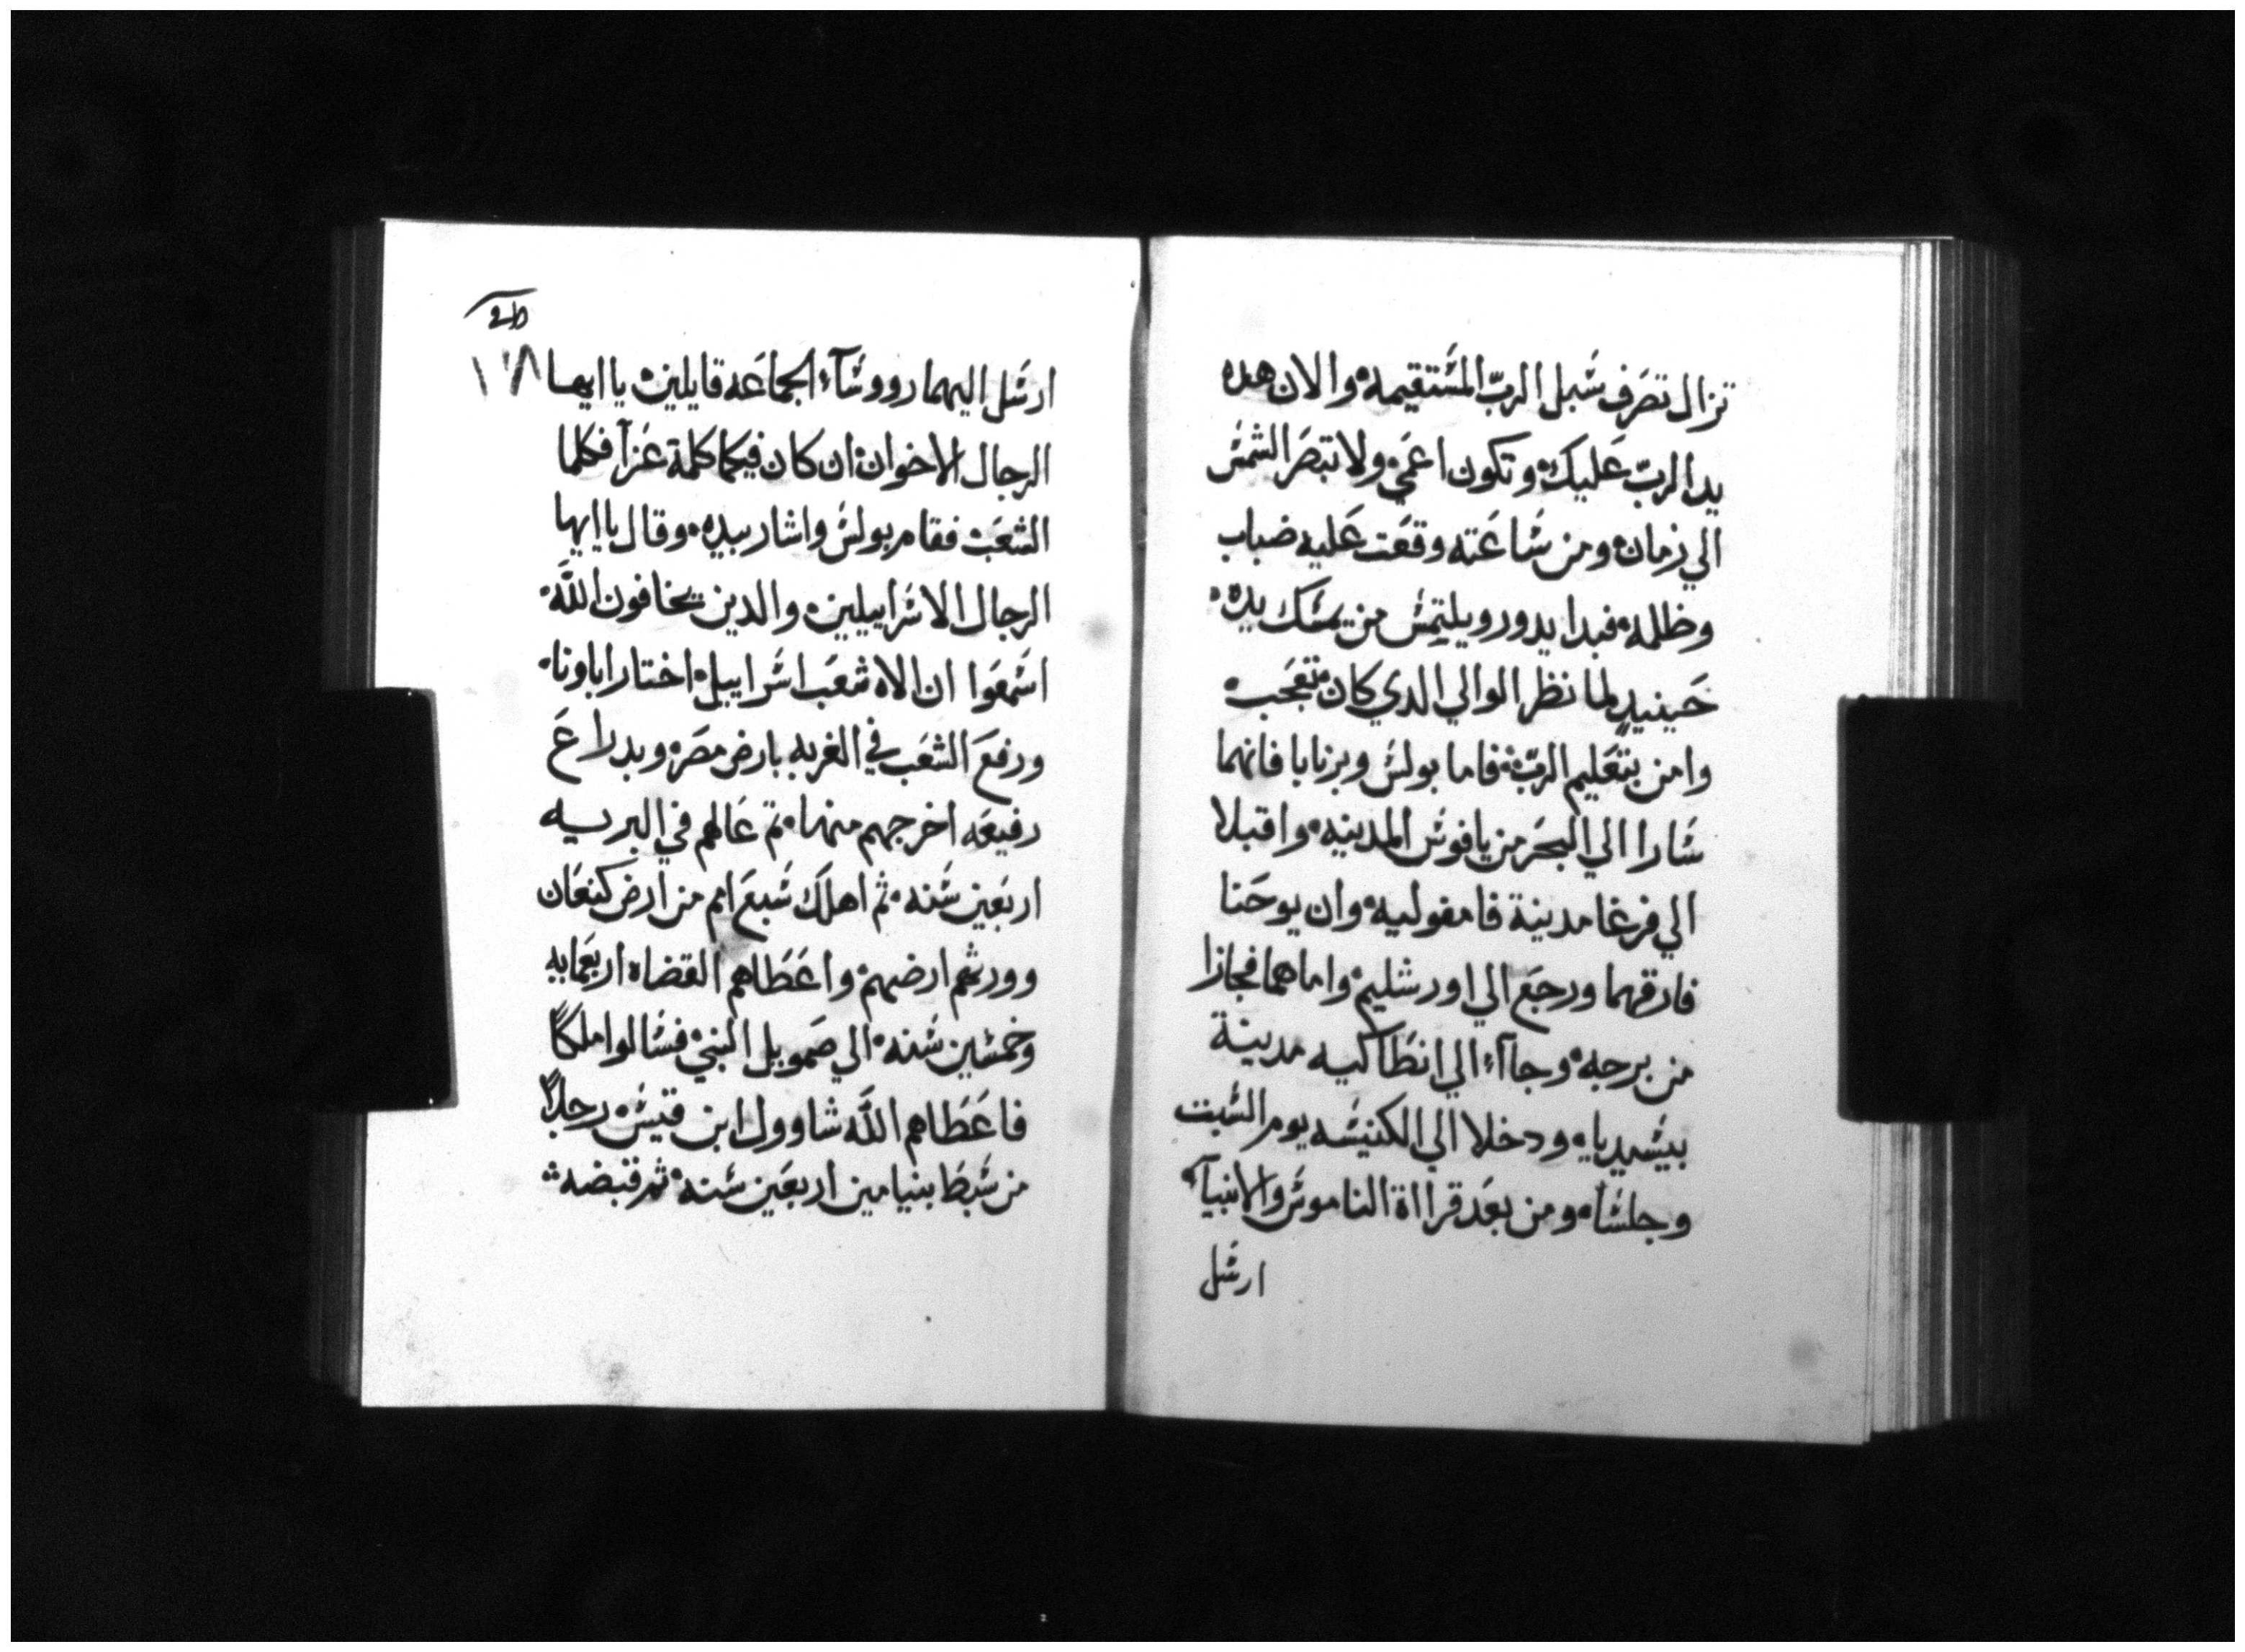 تزال تصرف سبل الرب المستقيمه والان هده
يد الرب عليك وتكون اعمي ولا تبصر الشمس
الي زمان ومن ساعته وقعت عليه ضباب
وظلمه فبدا يدور ويلتمس من يمسك يده
حينيد لما نظر الوالي الدي كان تعجب
وامن بتعليم الرب فاما بولس وبرنابا فانهما
سارا الي البحر من يافوس المدينه واقبلا
الي فرغا مدينة فامفوليه وان يوحنا
فارقهما ورجع الي اورشليم واما هما فجازا
من برجه وجاآء الي انطاكيه مدينة
بيسيديا ودخلا الي الكنيسه يوم السبت
وجلسا ومن بعد قرااة الناموس والانبيآء
ارسل
١٢٨
ارسل اليهما رووسآء الجماعه قايلين يا ايها
الرجال الاخوان ان كان فيكما كلمة عزآ فكلما
الشعب فقام بولس واشار بيده وقال يا ايها
الرجال الاسراييلين والدين يخافون الله
اسمعوا ان الاه شعب اسراييل اختار اباونا
ورفع الشعب في الغربه بارض مصر وبدراع
رفيعه اخرجهم منها تم عالهم في البريه
اربعين سنه ثم اهلك سبع امم من ارض كنعان
وورثهم ارضهم واعطاهم القضاه اربعمايه
وخمسين سنه الي صمويل النبي فسالوا ملكاً
فاعطاهم الله شاوول ابن قيس رجلاً
من سبط بنيامين اربعين سنه ثم قبضه